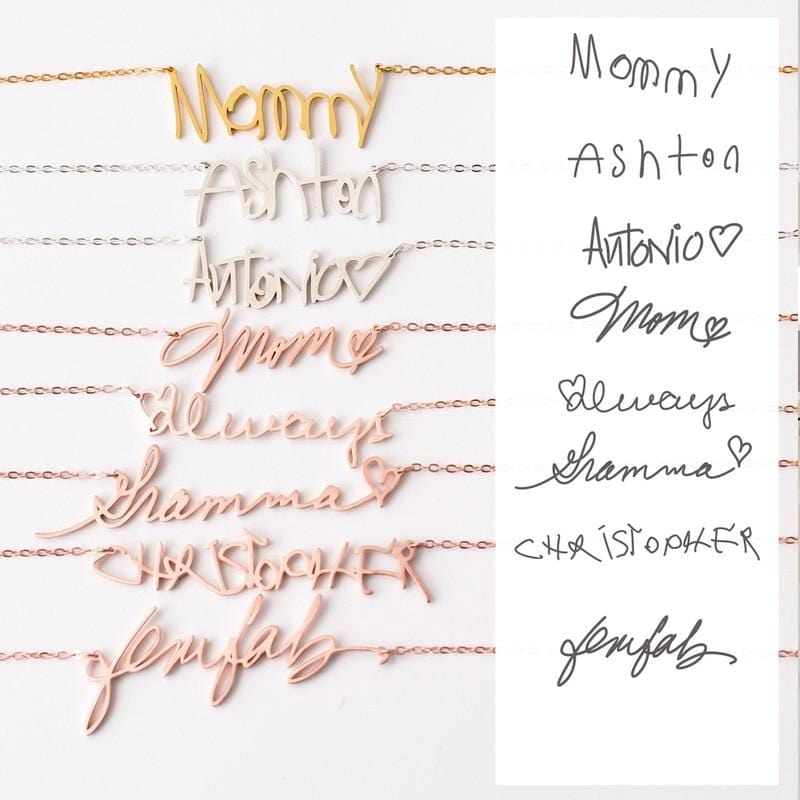 Mommy
Ashton
Antonio♡
Mom♡
♡always
Gramma♡
CHRISTOPHER
Mommy
Ashton
Antonio♡
Mom♡
♡always
Gramma♡
CHRISTOPHER